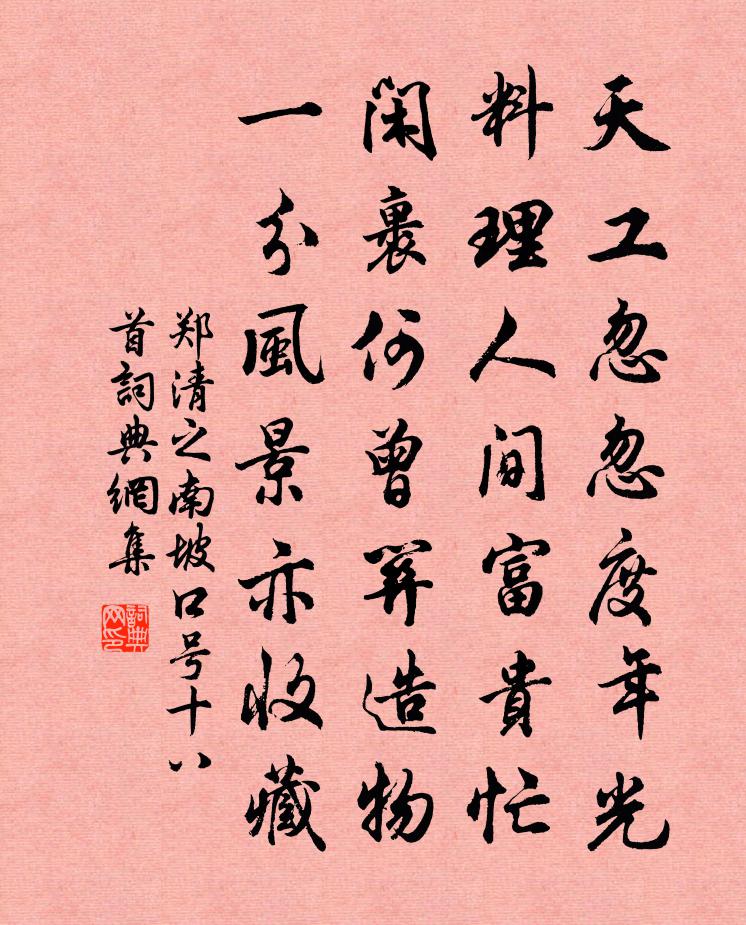 天工忽忽度年光
料理人间富貴忙
閑裏何曾算造物
一分風景亦收藏
郑清之南坡口号十八
首詞典網集
詞典网印